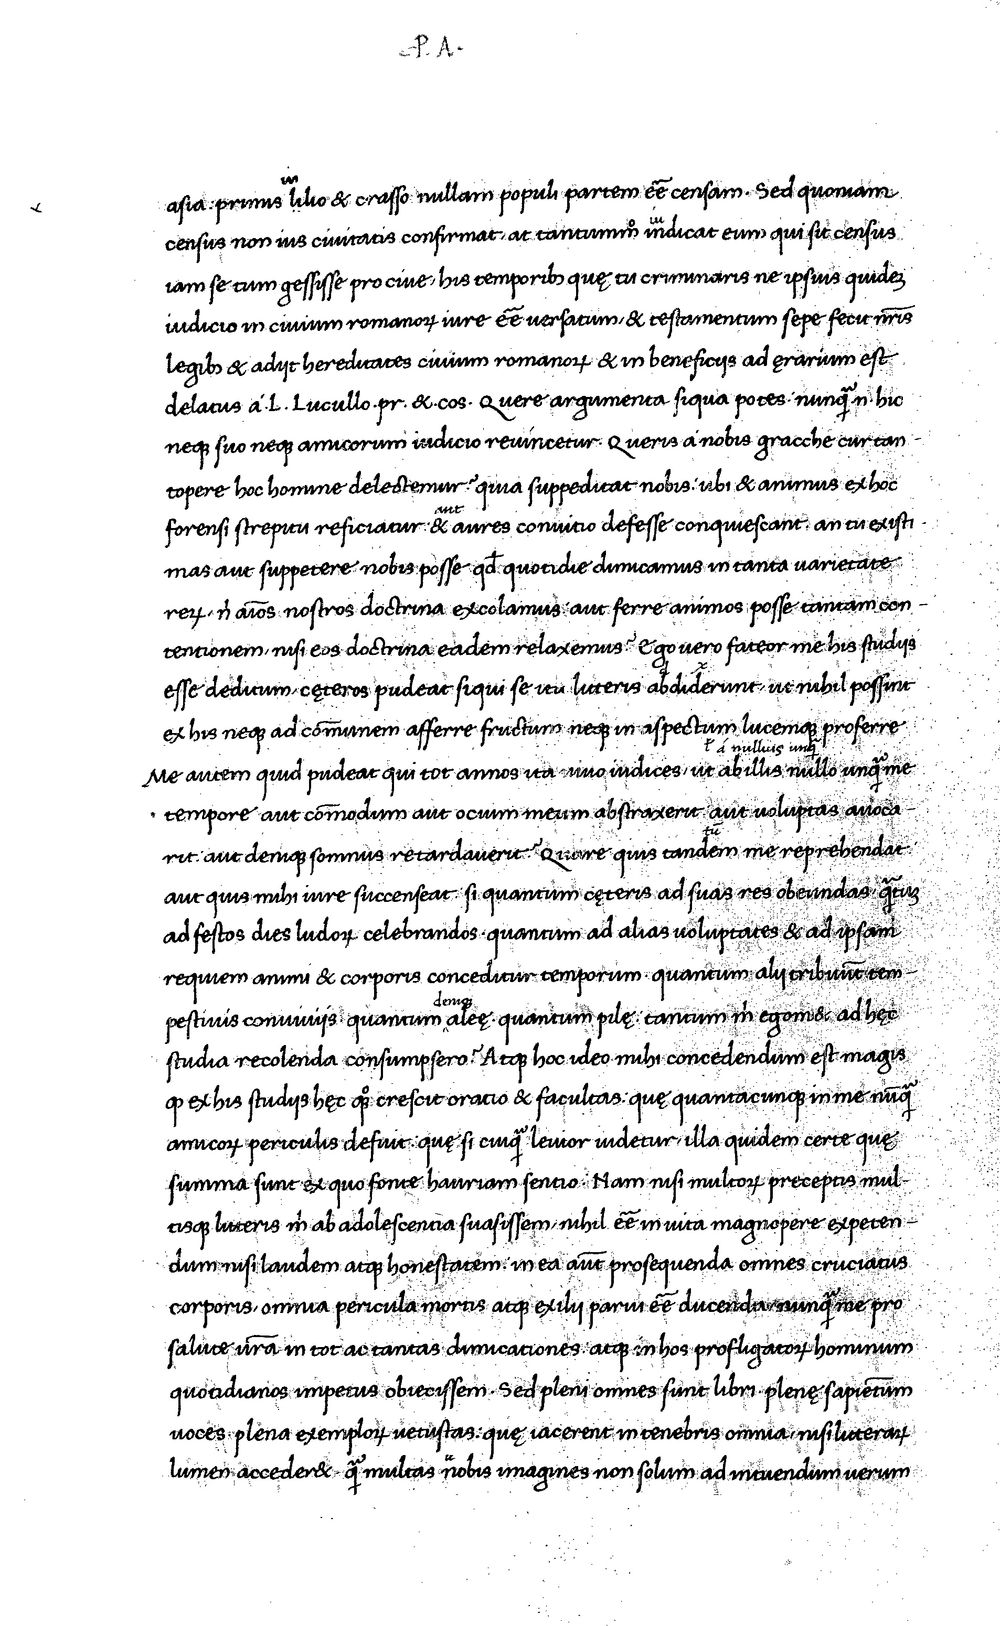 ·P. A·
in
asia. primus Iulio & crasso nullam populi partem eē censam. Sed quoniam
census non ius ciuitatis confirmat, at tantummo indicat eum qui sit census
iam se tum gessisse pro ciue, his temporibꝫ quę tu criminaris ne ipsius quideꝫ
iudicio in ciuium romanoꝝ iure eē uersatum, & testamentum sepe fecit nr̄is
legibꝫ & adijt hereditates ciuium romanoꝝ & in beneficijs ad ęrarium est
delatus á. L. Lucullo. pr. &. cos. Quere argumenta siqua potes. nunqᷓ. n. hic
neqꝫ suo neqꝫ amicorum iudicio reuincetur. Queris á nobis gracche cur tan-
topere hoc homine delectemur? quia suppeditat nobis. ubi & animus ex hoc
aut
forensi strepitu reficiatur. & aures conuitio defesse conquiescant. an tu existi-
mas aut suppetere nobis posse qđ quotidie dicamus in tanta uarietate
reꝝ, ń aīos nostros doctrina excolamus. aut ferre animos posse tantam con-
tentionem, nisi eos doctrina eadem relaxemus? Ego uero fateor me his studijs
esse deditum, cęteros pudeat siqui se ita litteris abdiderunt, ut nihil possint
ex his neqꝫ ad cōmunem afferre fructum neqꝫ in aspectum lucemqꝫ proferre
ł á nullius unqᷓ
Me autem quid pudeat qui tot annos ita uiuo iudices, ut ab illis nullo unqᷓ me
tempore aut cōmodum aut ocium meum abstraxerit aut uoluptas auoca-
tū
rit. aut deniqꝫ somnus retardauerit? Quare quis tandem me reprehendat
aut quis mihi iure succenseat. si quantum cęteris ad suas res obeundas. qᷓtuꝫ
ad festos dies ludoꝝ celebrandos. quantum ad alias uoluptates & ad ipsam
requiem animi & corporis conceditur temporum. quantum alij tribuūt tem-
deniqꝫ
pestiuis conuiuijs. quantum aleę. quantum pilę. tantum m̓ egom&. ad hęc
studia recolenda consumpsero? Atqꝫ hoc ideo mihi concedendum est magis
ꝙ ex his studijs hęc qꝫ crescit oratio & facultas. quę quantacunqꝫ in me nūqᷓ
amicoꝝ periculis defuit. quę si cuiqᷓ leuior uidetur, illa quidem certe quę
summa sunt ex quo fonte hauriam sentio. Nam nisi multoꝝ preceptis mul-
tisqꝫ litteris m̓ ab adolescentia suasissem, nihil eē in uita magnopere expeten-
dum nisi laudem atqꝫ honestatem. in ea aūt prosequenda omnes cruciatus
corporis, omnia pericula mortis atqꝫ exilij parui eē ducenda, nunqᷓ me pro
salute ur̄a in tot ac tantas dimicationes. atqꝫ in hos profligatoꝝ hominum
quotidianos impetus obiecissem. Sed pleni omnes sunt libri. plenę sapientum
uoces. plena exemploꝝ uetustas. quę iacerent in tenebris omnia, nisi litteraꝝ
lumen acceder&. qᷓ multas nobis imagines non solum ad intuendum uerum